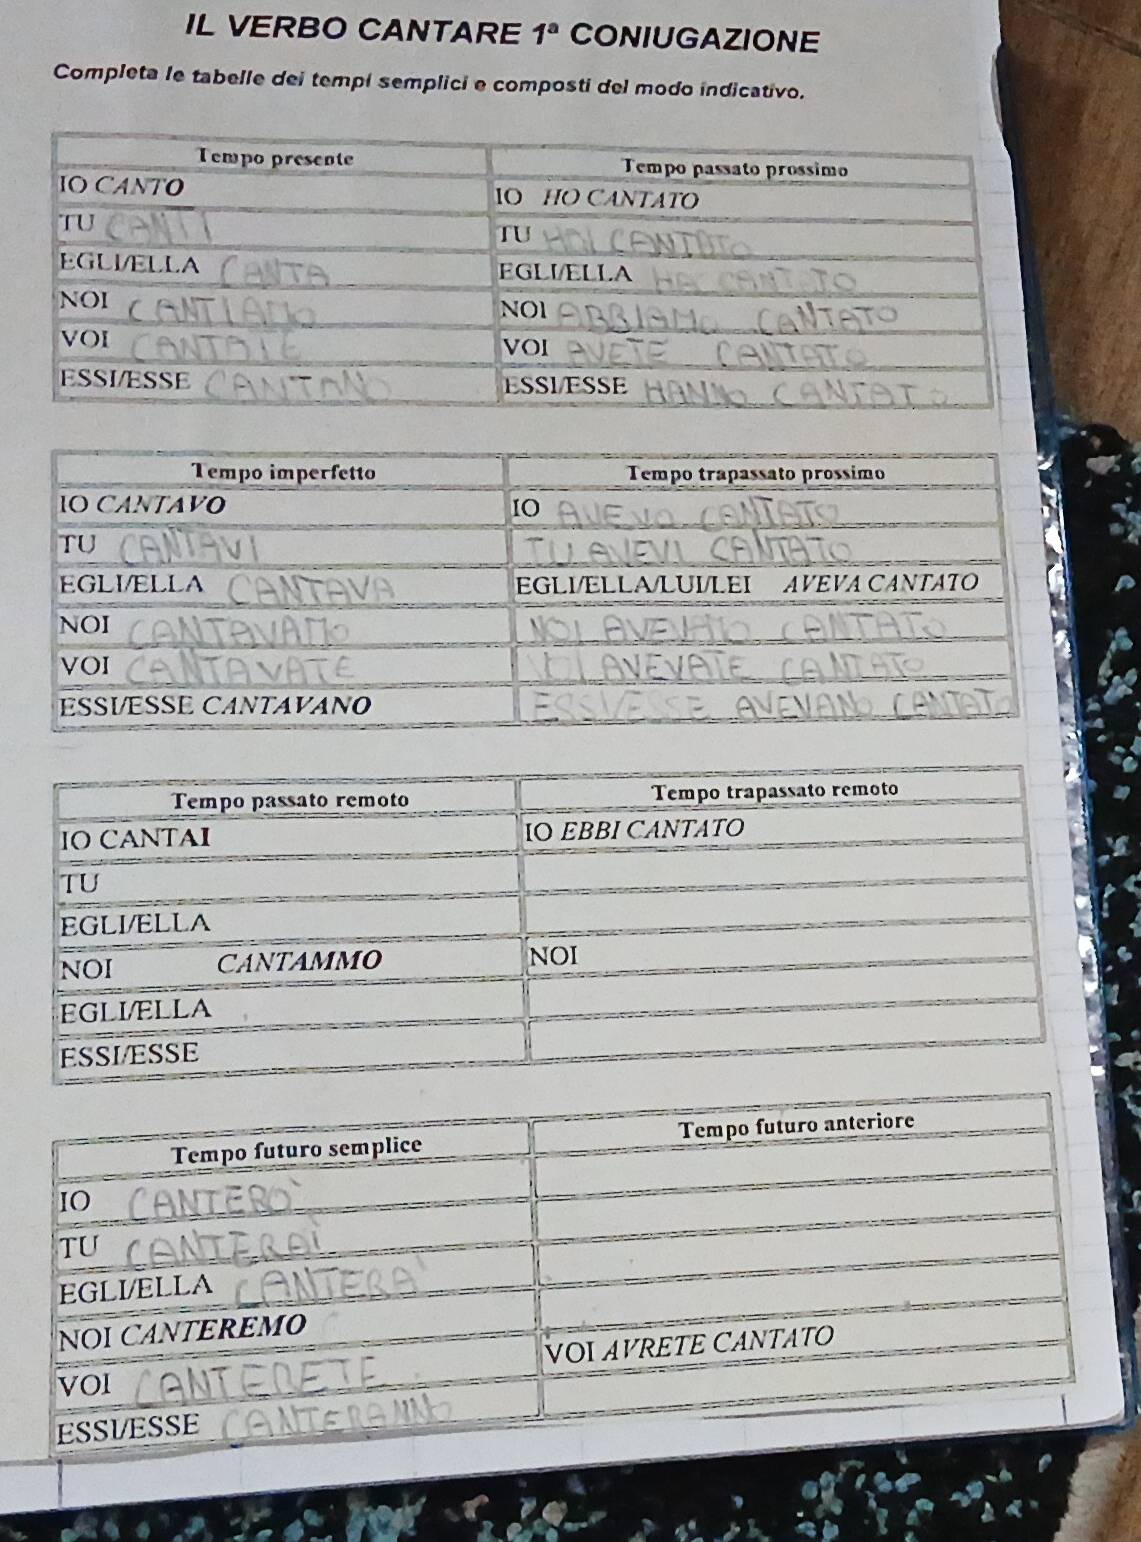 IL VERBO CANTARE 1ª CONIUGAZIONE
Completa le tabelle dei tempi semplici e composti del modo indicativo.
Tempo presente
Tempo passato prossimo
IO CANTO
IO HO CANTATO
TU CANTI
TU HAI CANTATO
EGLI/ELLA CANTA
EGLI/ELLA HA CANTATO
NOI CANTIAMO
NOI ABBIAMO CANTATO
VOI CANTATE
VOI AVETE CANTATO
ESSI/ESSE CANTANO
ESSI/ESSE HANNO CANTATO
Tempo imperfetto
Tempo trapassato prossimo
IO CANTAVO
IO AVEVO CANTATO
TU CANTAVI
TU AVEVI CANTATO
EGLI/ELLA CANTAVA
EGLI/ELLA/LUI/LEI AVEVA CANTATO
NOI CANTAVAMO
NOI AVEVAMO CANTATO
VOI CANTAVATE
VOI AVEVATE CANTATO
ESSI/ESSE CANTAVANO
ESSI/ESSE AVEVANO CANTATO
Tempo passato remoto
Tempo trapassato remoto
IO CANTAI
IO EBBI CANTATO
TU
EGLI/ELLA
NOI CANTAMMO
NOI
EGLI/ELLA
ESSI/ESSE
Tempo futuro semplice
Tempo futuro anteriore
IO CANTERO'
TU CANTERAI
EGLI/ELLA CANTERA'
NOI CANTEREMO
VOI CANTERETE
VOI AVRETE CANTATO
ESSI/ESSE CANTERANNO